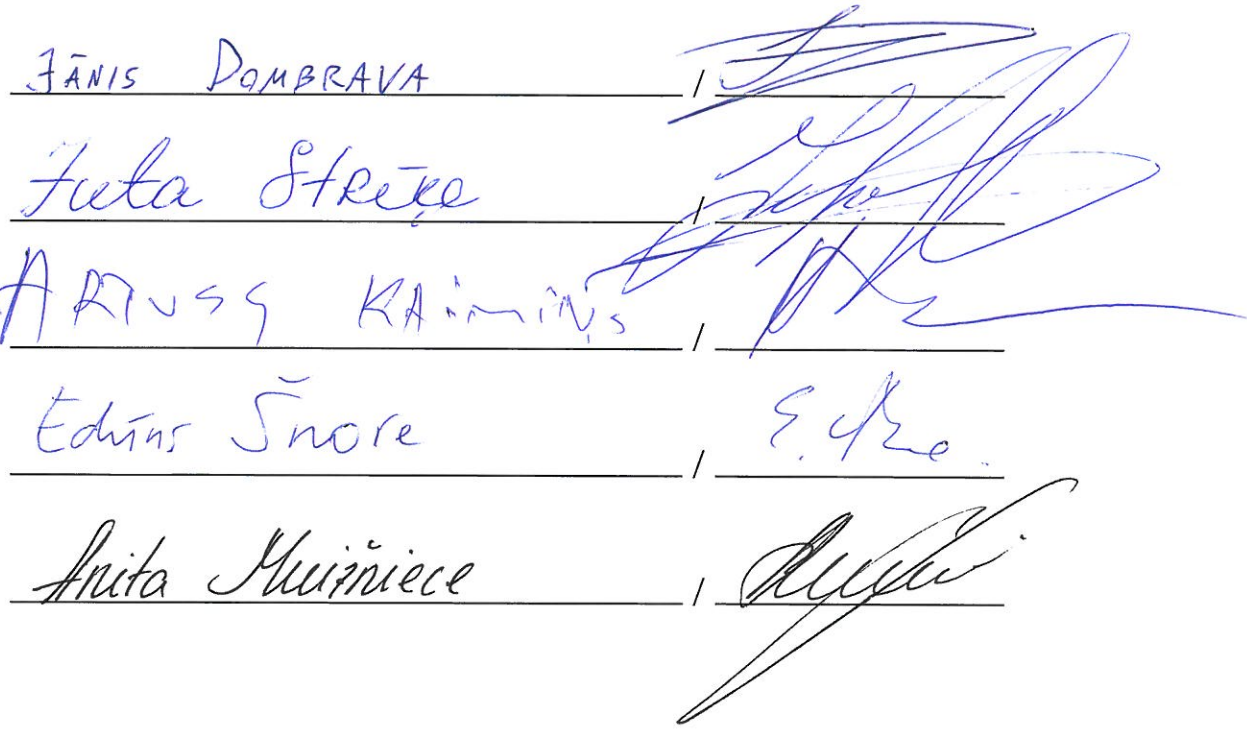 JĀNIS DOMBRAVA /
Juta Strīķe /
ARTUSS KAIMIŅŠ /
Edvīns Šnore /
Anita Muižniece /